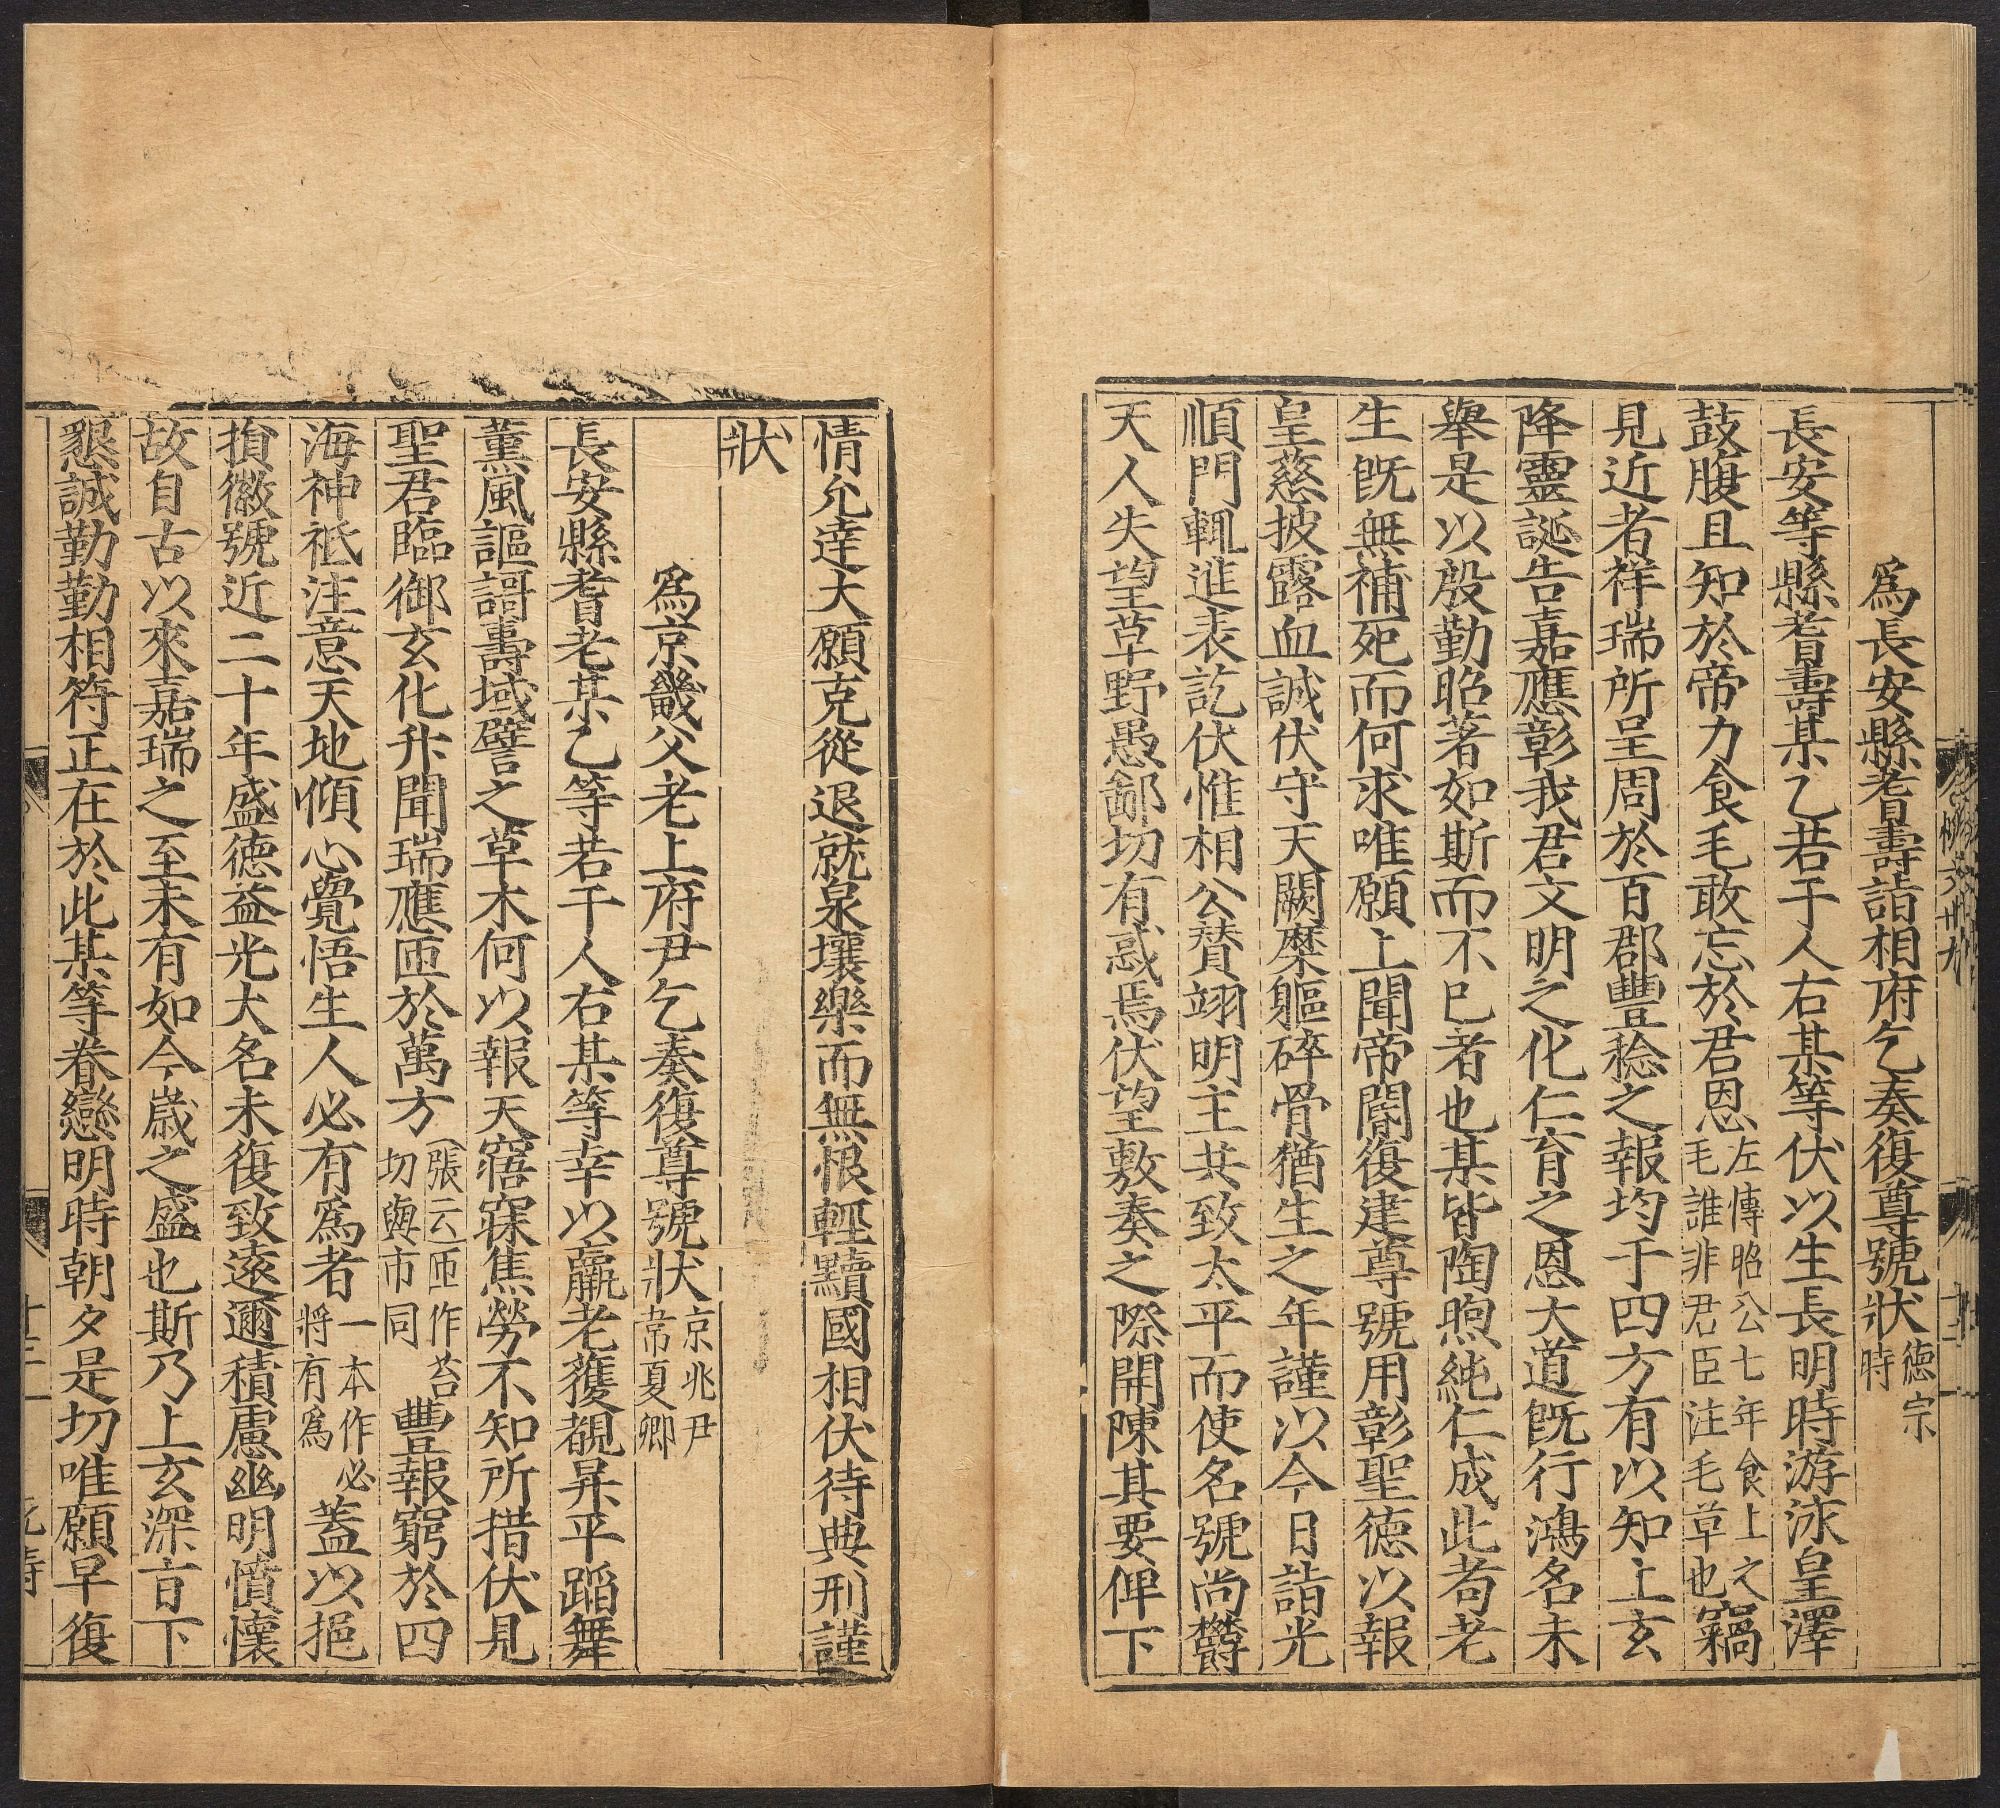 爲長安縣耆壽詣相府乞奏復尊號狀德宗時
長安等縣耆壽某乙若于人右某等伏以生長明時游泳皇澤
鼓腹且知於帝力食毛敢忘於君恩左傳昭公七年食上之毛誰非君臣注毛草也竊
見近者祥瑞所呈周於百郡豐稔之報均于四方有以知上玄
降靈誕告嘉應彰我君文明之化仁育之恩大道旣行鴻名未
舉是以殷勤昭著如斯而不已者也某皆陶煦純仁成此耇老
生旣無補死而何求唯願上聞帝閽復建尊號用彰聖德以報
皇慈披露血誠伏守天闕糜軀碎骨猶生之年謹以今日詣光
順門輒進表訖伏惟相公賛翊明主共致太平而使名號尚鬱
天人失望草野愚鄙切有惑焉伏望敷奏之際開陳其要俾下
情允達大願克從退就泉壤樂而無恨輕黷國相伏待典刑謹
狀
爲京畿父老上府尹乞奏復尊號狀京兆尹韋夏卿
長安縣耆老某乙等若干人右某等幸以羸老獲覩昇平蹈舞
薰風謳謌壽域譬之草木何以報天寤寐焦勞不知所措伏見
聖君臨御玄化升聞瑞應匝於萬方張云匝作荅切與市同豐報窮於四
海神祇注意天地傾心覺悟生人必有爲者一本作必將有爲蓋以挹
損徽號近二十年盛德益光大名未復致遠邇積慮幽明憤懷
故自古以來嘉瑞之至未有如今歲之盛也斯乃上玄深㫖下
懇誠勤勤相符正在於此某等眷戀明時朝夕是切唯願早復